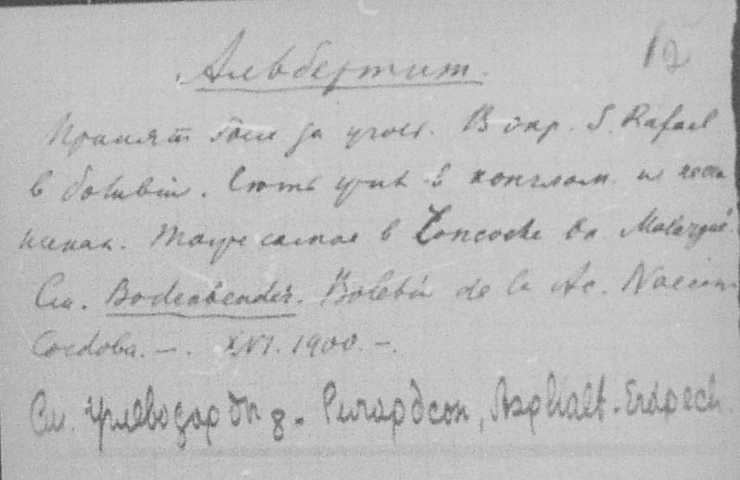 12
Альбертит.
Принят был за уголь. В окр. S. Rafael
в Bolubin. в конглом. и песча
никах. Тоже самое в Concoche bn. Malargué.
См. Bodenbender. Boletin de la Ac. Nacion.
Cordoba. —. XVI. 1900. —.
См. Углеводороды 8. Ричардсон, Asphalt. Erdpech.